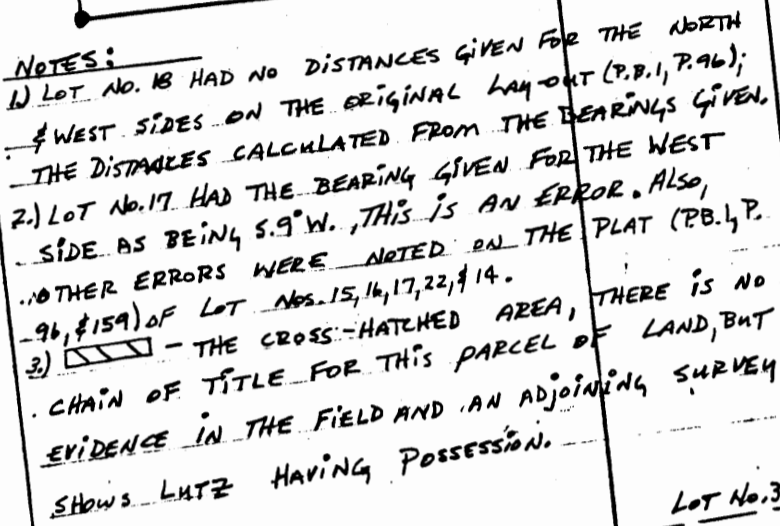 NOTES:
1.) LOT NO. 18 HAD NO DISTANCES GIVEN FOR THE NORTH
& WEST SIDES ON THE ORIGINAL LAY-OUT (P.B.1, P.96);
THE DISTANCES CALCULATED FROM THE BEARINGS GIVEN.
2.) LOT NO.17 HAD THE BEARING GIVEN FOR THE WEST
SIDE AS BEING S.9°W., THIS IS AN ERROR. ALSO,
OTHER ERRORS WERE NOTED ON THE PLAT (P.B.1, P.
96, & 159) OF LOT NOS. 15, 16, 17, 22, & 14.
3.) - THE CROSS-HATCHED AREA, THERE IS NO
CHAIN OF TITLE FOR THIS PARCEL OF LAND, BUT
EVIDENCE IN THE FIELD AND AN ADJOINING SURVEY
SHOWS LUTZ HAVING POSSESSION.
LOT NO.3